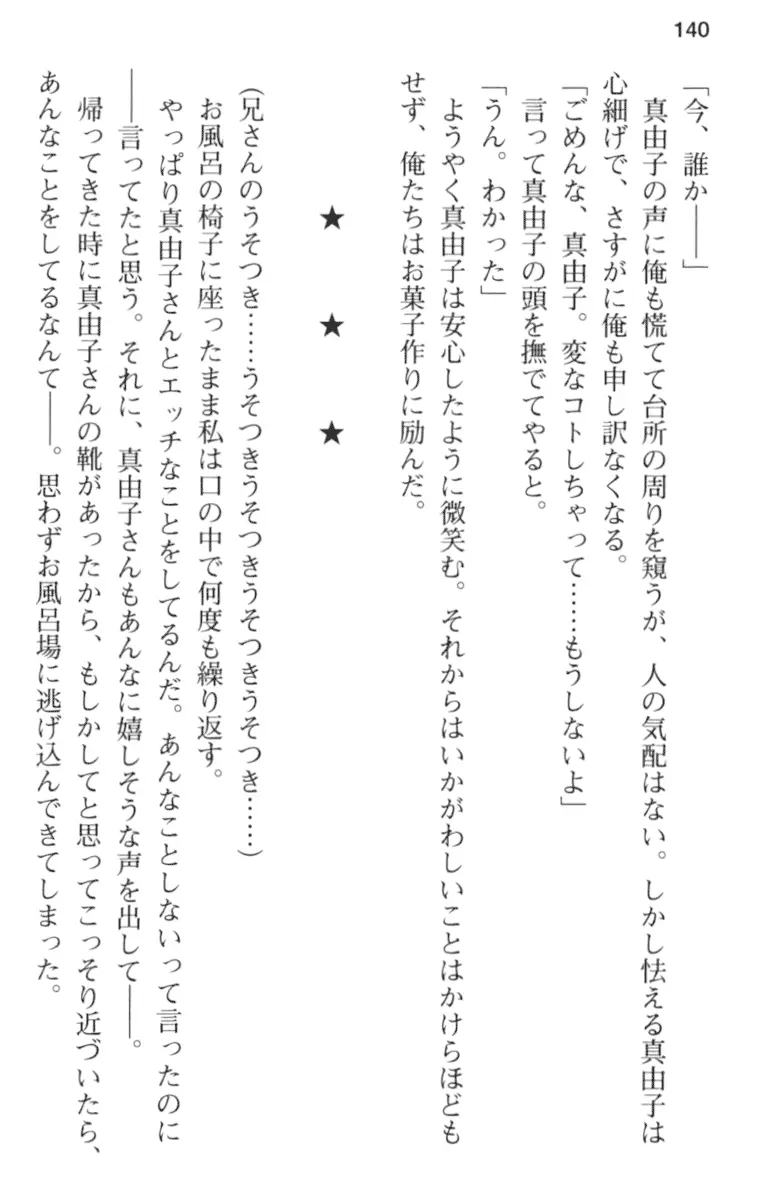 140
「今、誰か――」
真由子の声に俺も慌てて台所の周りを窺うが、人の気配はない。しかし怯える真由子は
心細げで、さすがに俺も申し訳なくなる。
「ごめんな、真由子。変なコトしちゃって……もうしないよ」
言って真由子の頭を撫でてやると。
「うん。わかった」
ようやく真由子は安心したように微笑む。それからはいかがわしいことはかけらほども
せず、俺たちはお菓子作りに励んだ。
★ ★ ★
(兄さんのうそつき……うそつきうそつきうそつきうそつき……)
お風呂の椅子に座ったまま私は口の中で何度も繰り返す。
やっぱり真由子さんとエッチなことをしてるんだ。あんなことしないって言ったのに
――言ってたと思う。それに、真由子さんもあんなに嬉しそうな声を出して――。
帰ってきた時に真由子さんの靴があったから、もしかしてと思ってこっそり近づいたら、
あんなことをしてるなんて――。思わずお風呂場に逃げ込んできてしまった。